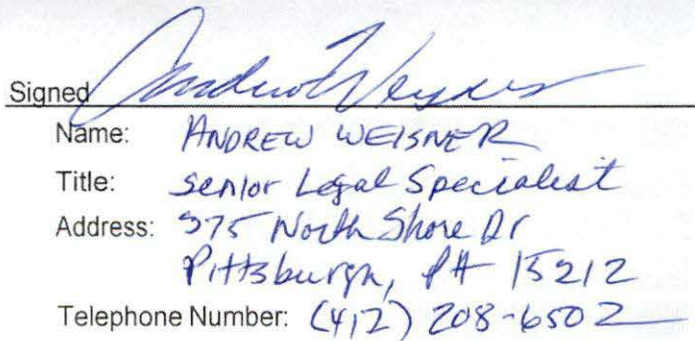 Signed Andrew Weisner
Name: ANDREW WEISNER
Title: Senior Legal Specialist
Address: 375 North Shore Dr
Pittsburgh, PA 15212
Telephone Number: (412) 208-6502